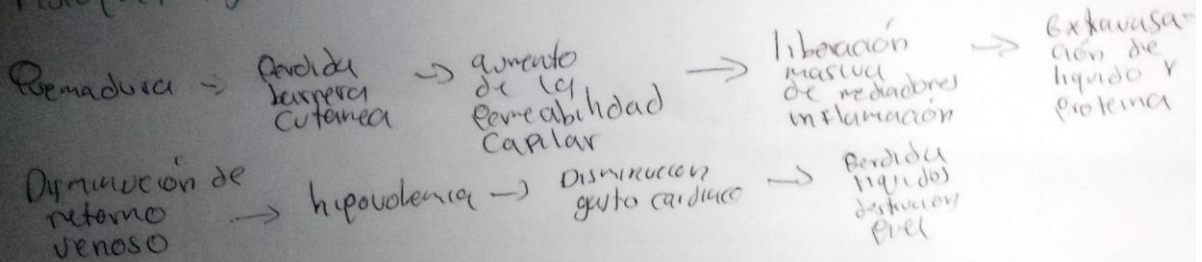 Quemadura → Perdida barrera cutanea → aumento de la Permeabilidad Capilar → liberación masiva de mediadores inflamación → Extravasación de liquido y proteina
Disminución de retorno venoso → hipovolemia → Disminucion gasto cardiaco → Perdida liquidos destrucion piel